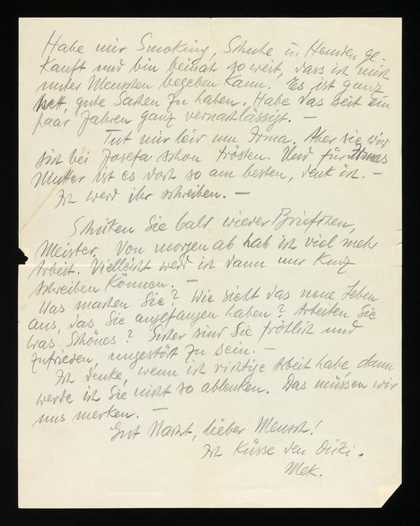 Habe mir Smoking, Schuhe u. Hemden ge-
kauft und bin beinah so weit, dass ich mich
unter Menschen begeben kann. Es ist ganz
nett, gute Sachen zu haben. Habe das seit ein
paar Jahren ganz vernachlässigt. —
Tut mir leid um Irma. Aber sie wird
sich bei Josefa schon trösten. Und für Irmas
Mutter ist es dort so am besten, denk ich. —
Ich werd ihr schreiben. —
Schicken Sie bald wieder Briefchen,
Meister. Von morgen ab hab ich viel mehr
Arbeit. Vielleicht werd ich dann nur kurz
schreiben können. —
Was machen Sie? Wie sieht das neue Leben
aus, das Sie angefangen haben? Arbeiten Sie
was Schönes? Sicher sind Sie fröhlich und
zufrieden, ungestört zu sein. —
Ich denke, wenn ich richtige Arbeit habe, dann
werde ich Sie nicht so ablenken. Das müssen wir
uns merken. —
Gut Nacht, lieber Mensch!
Ich küsse den
Mek.